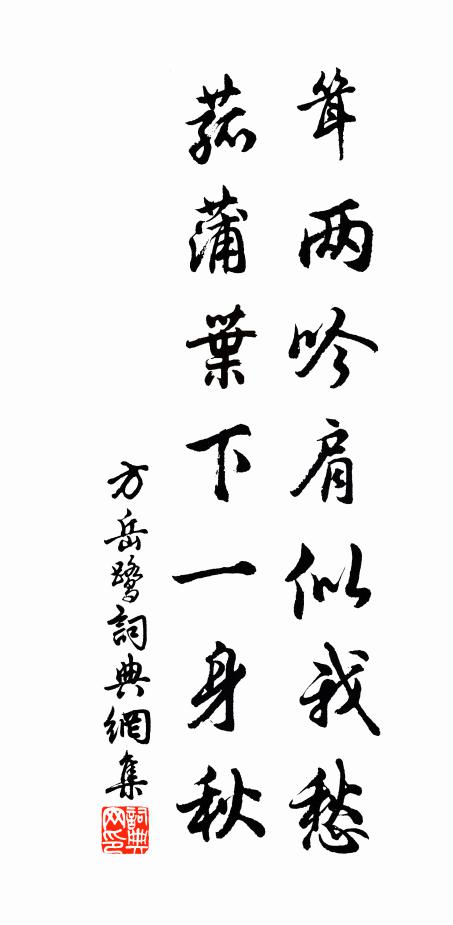 耸两吟肩似我愁
菰蒲葉下一身秋
方岳鹭詞典網集
詞典
网印